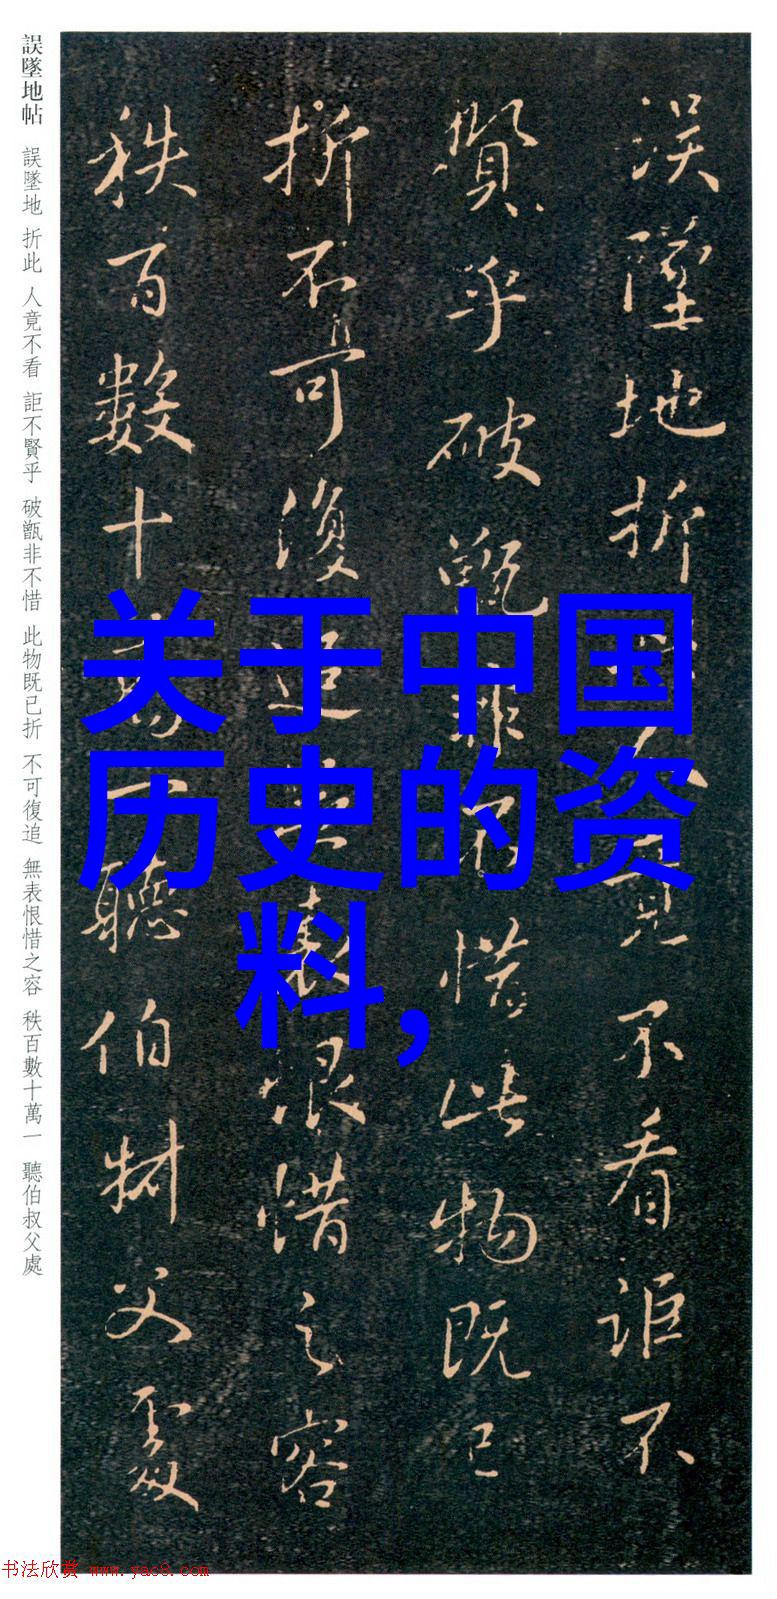 誤墜地帖 誤墜地 折此 人竟不看 詎不賢乎 破甑非不惜 此物既已折 不可復追 無表恨惜之容 秩百數十萬一 聽伯叔父處
误墜地折此人竟不看詎不
賢乎破甑非不惜此物既已
折不可復追無表恨惜之容
秩百數十萬一聽伯叔父處
关于中国
历史的资
料,
书法欣赏 www.yac8.com